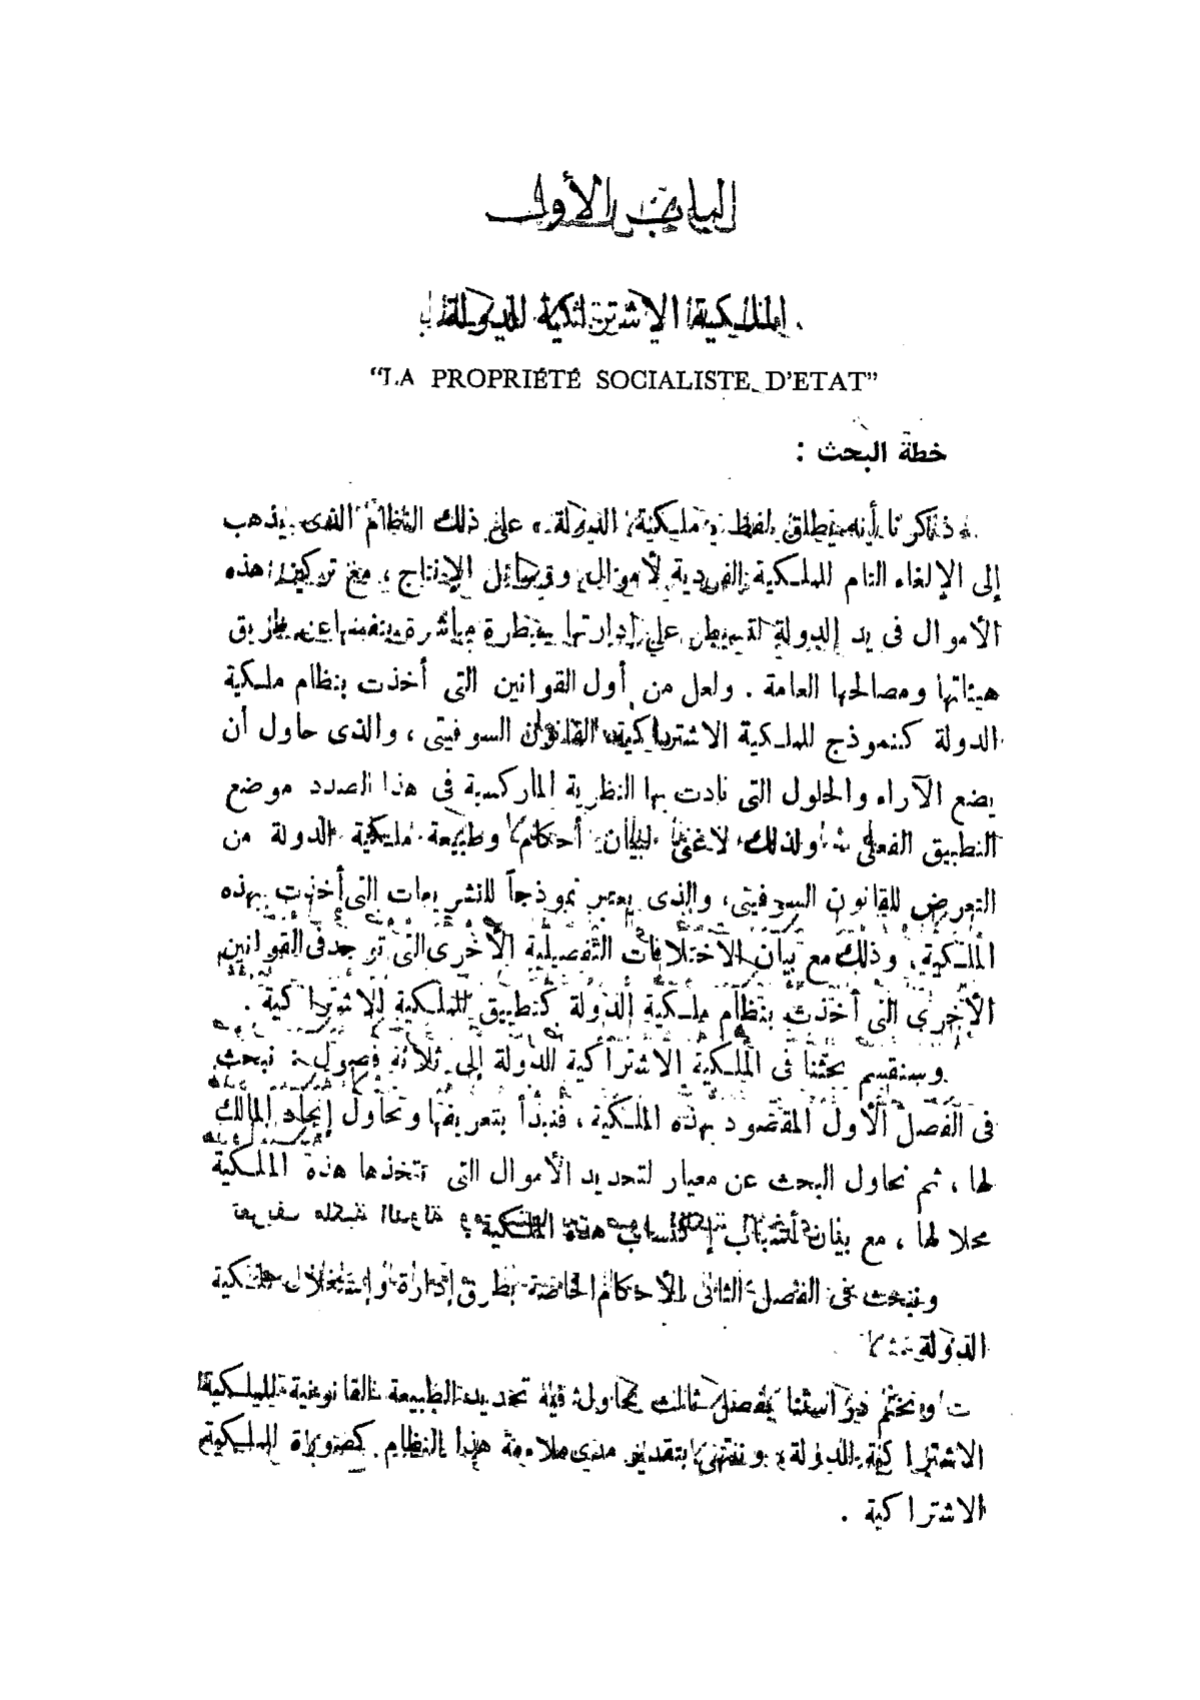 الباب الأول
الملكية الاشتراكية للدولة
“LA PROPRIÉTÉ SOCIALISTE D’ETAT”
خطة البحث :
ذكرنا أنه يطلق لفظ « ملكية الدولة » على ذلك النظام الذى يذهب
إلى الإلغاء التام للملكية الفردية لأموال ووسائل الإنتاج ، مع تركيز هذه
الأموال فى يد الدولة لتسيطر على إدارتها سيطرة مباشرة بنفسها عن طريق
هيئاتها ومصالحها العامة . ولعل من أول القوانين التى أخذت بنظام ملكية
الدولة كنموذج للملكية الاشتراكية، القانون السوفيتى ، والذى حاول أن
يضع الآراء والحلول التى نادت بها النظرية الماركسية فى هذا الصدد موضع
التطبيق الفعلى ولذلك لاغنى لبيان أحكام وطبيعة ملكية الدولة من
التعرض للقانون السوفيتى، والذى يعتبر نموذجاً للتشريعات التى أخذت بهذه
الملكية، وذلك مع بيان الاختلافات التفصيلية الأخرى التى توجد فى القوانين
الأخرى التى أخذت بنظام ملكية الدولة كتطبيق للملكية الاشتراكية .
وسنقسم بحثنا فى الملكية الاشتراكية للدولة إلى ثلاثة فصول : نبحث
فى الفصل الأول المقصود بهذه الملكية ، فنبدأ بتعريفها ونحاول إيجاد المالك
لها ، ثم نحاول البحث عن معيار لتحديد الأموال التى تتخذها هذه الملكية
محلا لها ، مع بيان أسباب إكتساب هذه الملكية
ونبحث فى الفصل الثانى الأحكام الخاصة بطرق إدارة وإستغلال ملكية
الدولة
ونختم دراستنا بفصل ثالث نحاول فيه تحديد الطبيعة القانونية للملكية
الاشتراكية للدولة، وننتهى بتقدير مدى ملاءمة هذا النظام كصورة للملكية
الاشتراكية .